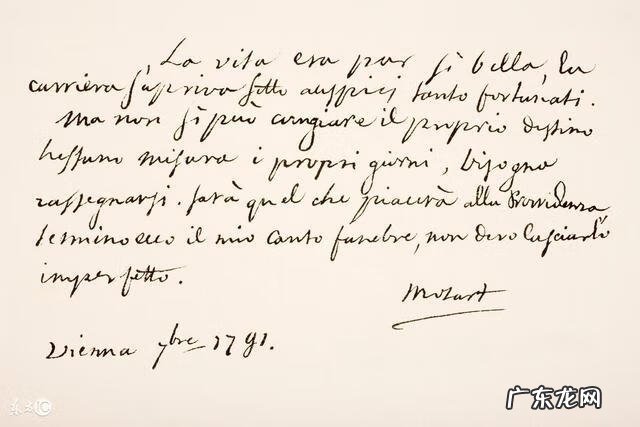 La vita era pur sì bella, la
carriera s'apriva sotto auspicj tanto fortunati.
Ma non si può cangiare il proprio destino
nessuno misura i propri giorni, bisogna
rassegnarsi. sarà quel che piacerà alla Provvidenza
termino ecco il mio canto funebre, non devo lasciarlo
imperfetto.
Mozart
Vienna 7bre 1791.
广东龙网